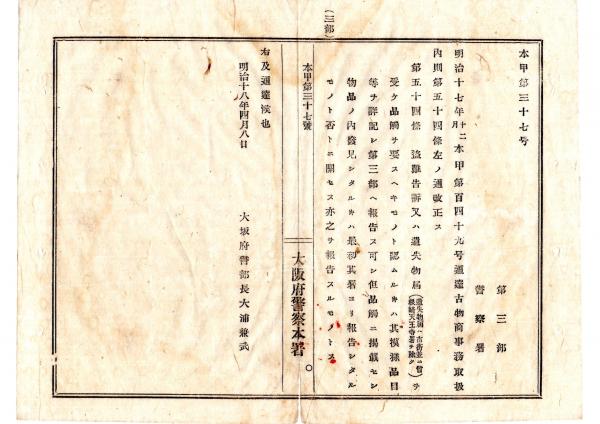 (三部)
本甲第三十七号
第三部
警察署
明治十七年十二月本甲第百四十九号通達古物商事務取扱
内則第五十四條左ノ通改正ス
第五十四條 盗難告訴又ハ遺失物届(遺失物届ハ市街並ニ曾根崎天王寺署ヲ除ク)ヲ
受ケ品觸ヲ要スヘキモノト認ムルキハ其模様品目
等ヲ詳記シ第三部ヘ報告ス可シ但品觸ニ掲載セシ
物品ノ內發見シタルキハ最初其署ヨリ報告シタル
モノト否トニ關セス亦之ヲ報告スルモノトス
本甲第三十七號
大阪府警察本署
右及通達候也
明治十八年四月八日
大坂府警部長大浦兼武